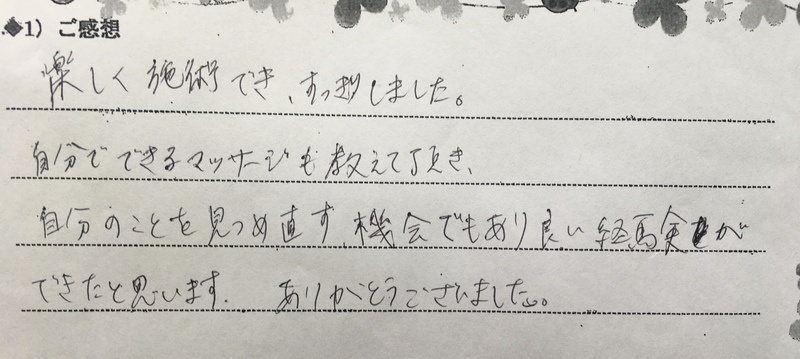 ◆1）ご感想
楽しく施術でき、すっきりしました。
自分でできるマッサージも教えて頂き、
自分のことを見つめ直す機会でもあり良い経験が
できたと思います。 ありがとうございました。